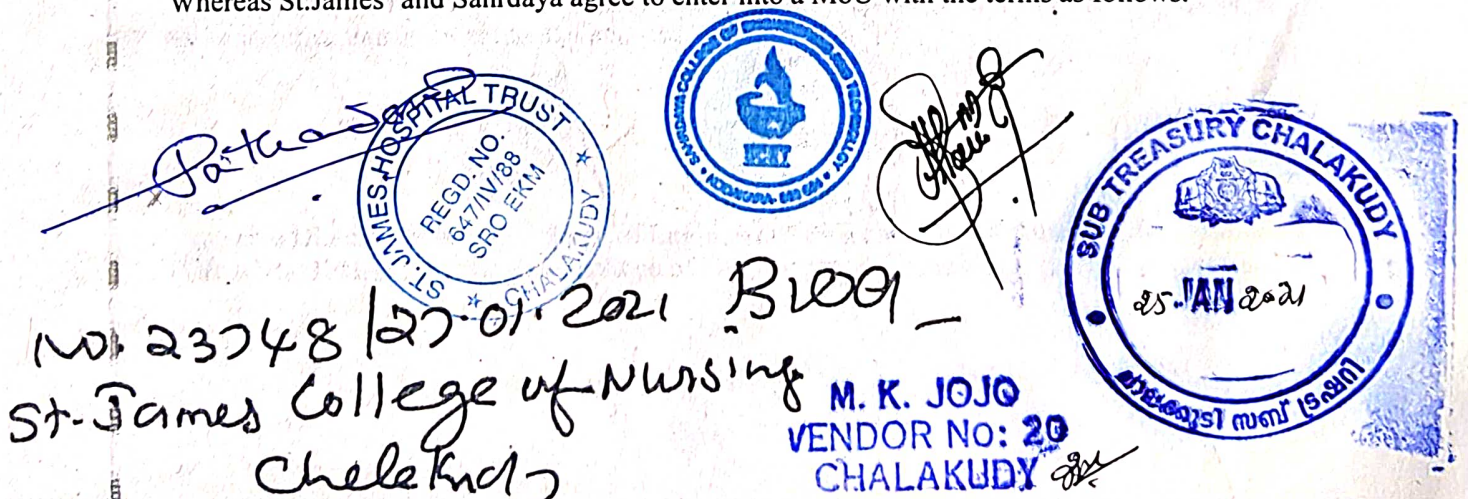 Whereas St.James and Sahrdaya agree to enter into a MoU with the terms as follows:
ST. JAMES HOSPITAL TRUST
CHALAKUDY
REGD. NO.
647/IV/88
SRO EKM
SAHRDAYA COLLEGE OF ENGINEERING AND TECHNOLOGY
KODAKARA
SUB TREASURY CHALAKUDY
25 JAN 2021
ചാലക്കുടി സബ് ട്രഷറി
No. 23748/27.01.2021
St. James College of Nursing
M. K. JOJO
VENDOR NO: 20
CHALAKUDY